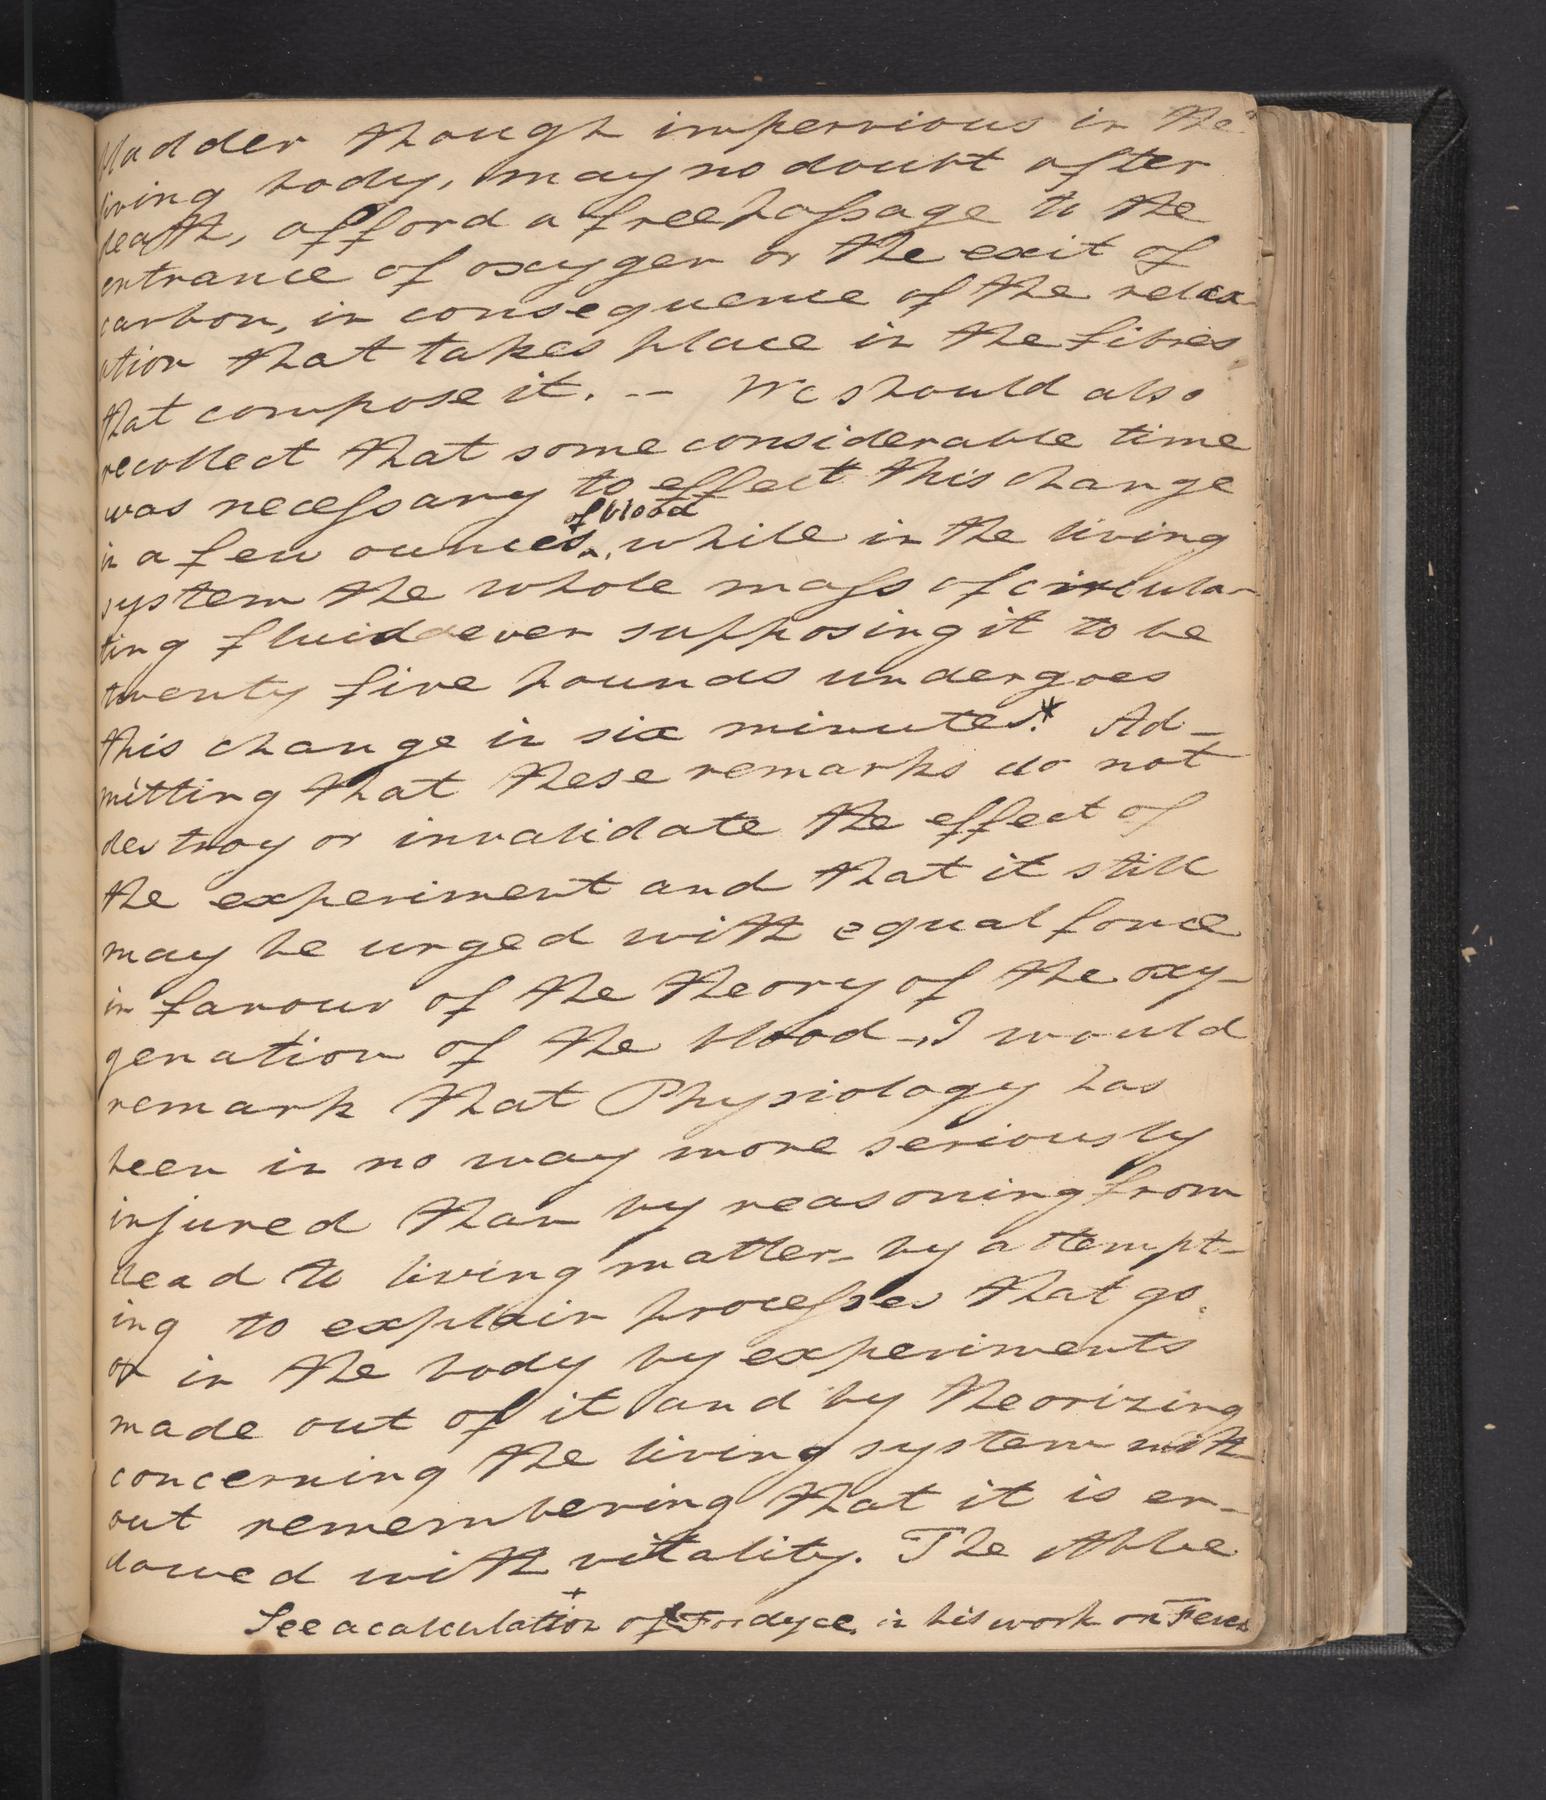 bladder though impervious in the
living body, may no doubt after
death, afford a free passage to the
entrance of oxygen or the exit of
carbon, in consequence of the relax-
ation that takes place in the fibres
that compose it. -- We should also
recollect that some considerable time
was necessary to effect this change
of blood
in a few ounces ^, while in the living
system the whole mass of circula-
ting fluid even supposing it to be
twenty five pounds undergoes
this change in six minutes.* Ad-
mitting that these remarks do not
destroy or invalidate the effect of
the experiment and that it still
may be urged with equal force
in favour of the theory of the oxy-
genation of the blood -, I would
remark that Physiology has
been in no way more seriously
injured than by reasoning from
dead to living matter - by attempt-
ing to explain processes that go
on in the body by experiments
made out of it and by theorizing
concerning the living system with
out remembering that it is en-
dowed with vitality. The Abbe
+
See a calculation of Fordyce, in his work on Fever